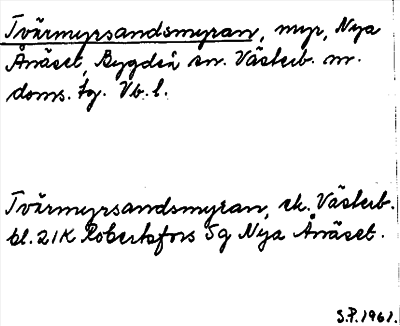 Tvärmyrsandsmyran, myr, Nya
Ånäset, Bygdeå sn. Västerb. n.
doms. tg. Vb. l.
Tvärmyrsandsmyran, ek. Västerb.
bl. 21K Robertsfors 5g Nya Ånäset.
S.P. 1961.